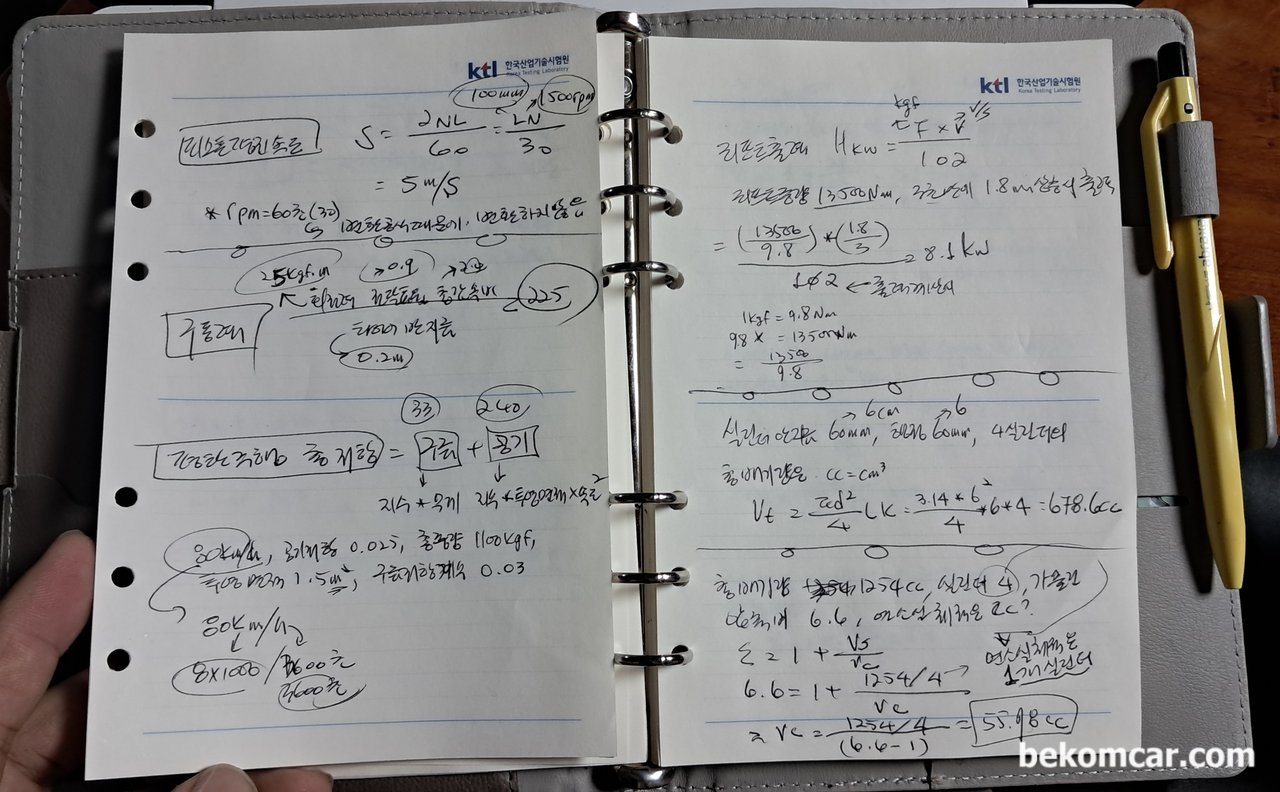 ktl 한국산업기술시험원
Korea Testing Laboratory
100mm 1500rpm
피스톤평균속도 S = 2NL/60 = LN/30
= 5m/s
* rpm=60초(30)
25kgf.m >0.9
225
구동력
타이어 반지름
0.2m
33 240
평탄주행 총저항 = 구름 + 공기
계수*무게 계수*투영면적*속도²
80km/h, 공기저항 0.025, 총중량 1100kgf,
투영면적 1.5m², 구름저항계수 0.03
80km/h
8×1000/3600초
3600초
ktl 한국산업기술시험원
Korea Testing Laboratory
kgf m/s
리프트출력 Hkw = F×V/102
리프트중량 13500Nm, 3초만에 1.8m 상승시 출력
= (13500/9.8)*(1.8/3)/102 = 8.1kw
←출력계산시
1kgf = 9.8Nm
9.8 * = 13500Nm
= 13500/9.8
→6cm →6
실린더 안지름 60mm, 행정 60mm, 4실린더의
총배기량은 cc=cm³
Vt = πd²/4 LK = 3.14*6²/4*6*4 = 678.6cc
총배기량 1254cc, 실린더 4, 가솔린
압축비 6.6, 연소실체적은 cc?
ε = 1 + Vs/Vc
연소실체적은
1개실린더
6.6 = 1 + 1254/4/Vc
Vc = 1254/4/(6.6-1) = 55.98cc
bekomcar.com